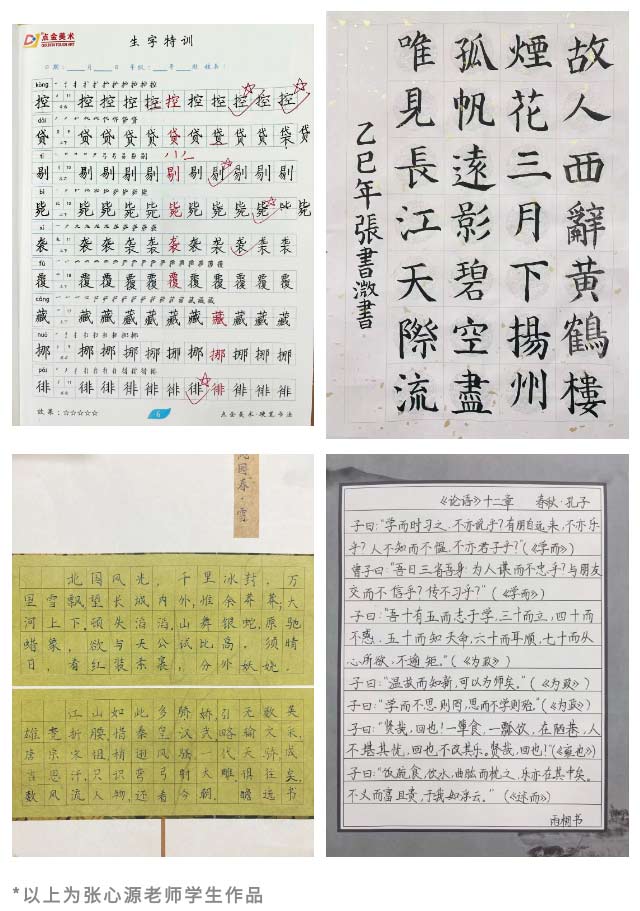 点金美术
生字特训
日期：___月___日 年级：___年___班 姓名：
kòng
控 控 控 控 控 控 控 控 控 控
dài
贷 贷 贷 贷 贷 贷 贷 贷 贷 袋 贷
tī
剔 剔 剔 剔 剔 剔 剔 剔 剔 剔
bì
毙 毙 毙 毙 毙 毙 毙 毙 毙 毙
xí
袭 袭 袭 袭 袭 袭 袭 袭 袭 袭
fù
覆 覆 覆 覆 覆 覆 覆 覆 覆 覆
cáng
藏 藏 藏 藏 藏 藏 藏 藏 藏 藏
nuó
挪 挪 挪 挪 挪 挪 挪 挪 挪 挪
pái
徘 徘 徘 徘 徘 徘 徘 徘 徘 徘
效果：☆☆☆☆☆
6
点金美术·硬笔书法
故人西辭黃鶴樓
煙花三月下揚州
孤帆遠影碧空盡
唯見長江天際流
乙巳年張書溦書
园春·雪
北国风光，千里冰封，万
里雪飘望长城内外，惟余莽莽，大
河上下，顿失滔滔，山舞银蛇，原驰
蜡象，欲与天公试比高，须晴
日，看红装素裹，分外妖娆。
江山如此多骄娇，引无数英
雄竞折腰惜秦皇汉武，略输文采，
唐宗宋祖稍逊风骚，一代天骄，成
吉思汗，只识弯弓射大雕，俱往矣，
数风流人物，还看今朝。瞻远书
《论语》十二章 春秋·孔子
子曰：“学而时习之，不亦说乎？有朋自远来，不亦乐
乎？人不知而不愠，不亦君子乎？”（《学而》）
曾子曰：“吾日三省吾身：为人谋而不忠乎？与朋友
交而不信乎？传不习乎？”（《学而》）
子曰：“吾十有五而志于学，三十而立，四十而
不惑，五十而知天命，六十而耳顺，七十而从
心所欲，不逾矩。”（《为政》）
子曰：“温故而知新，可以为师矣。”（《为政》）
子曰：“学而不思则罔，思而不学则殆。”（《为政》）
子曰：“贤哉，回也！一箪食，一瓢饮，在陋巷，人
不堪其忧，回也不改其乐。贤哉，回也！”（《雍也》）
子曰：“饭疏食，饮水，曲肱而枕之，乐亦在其中矣。
不义而富且贵，于我如浮云。”（《述而》）
雨桐书
*以上为张心源老师学生作品